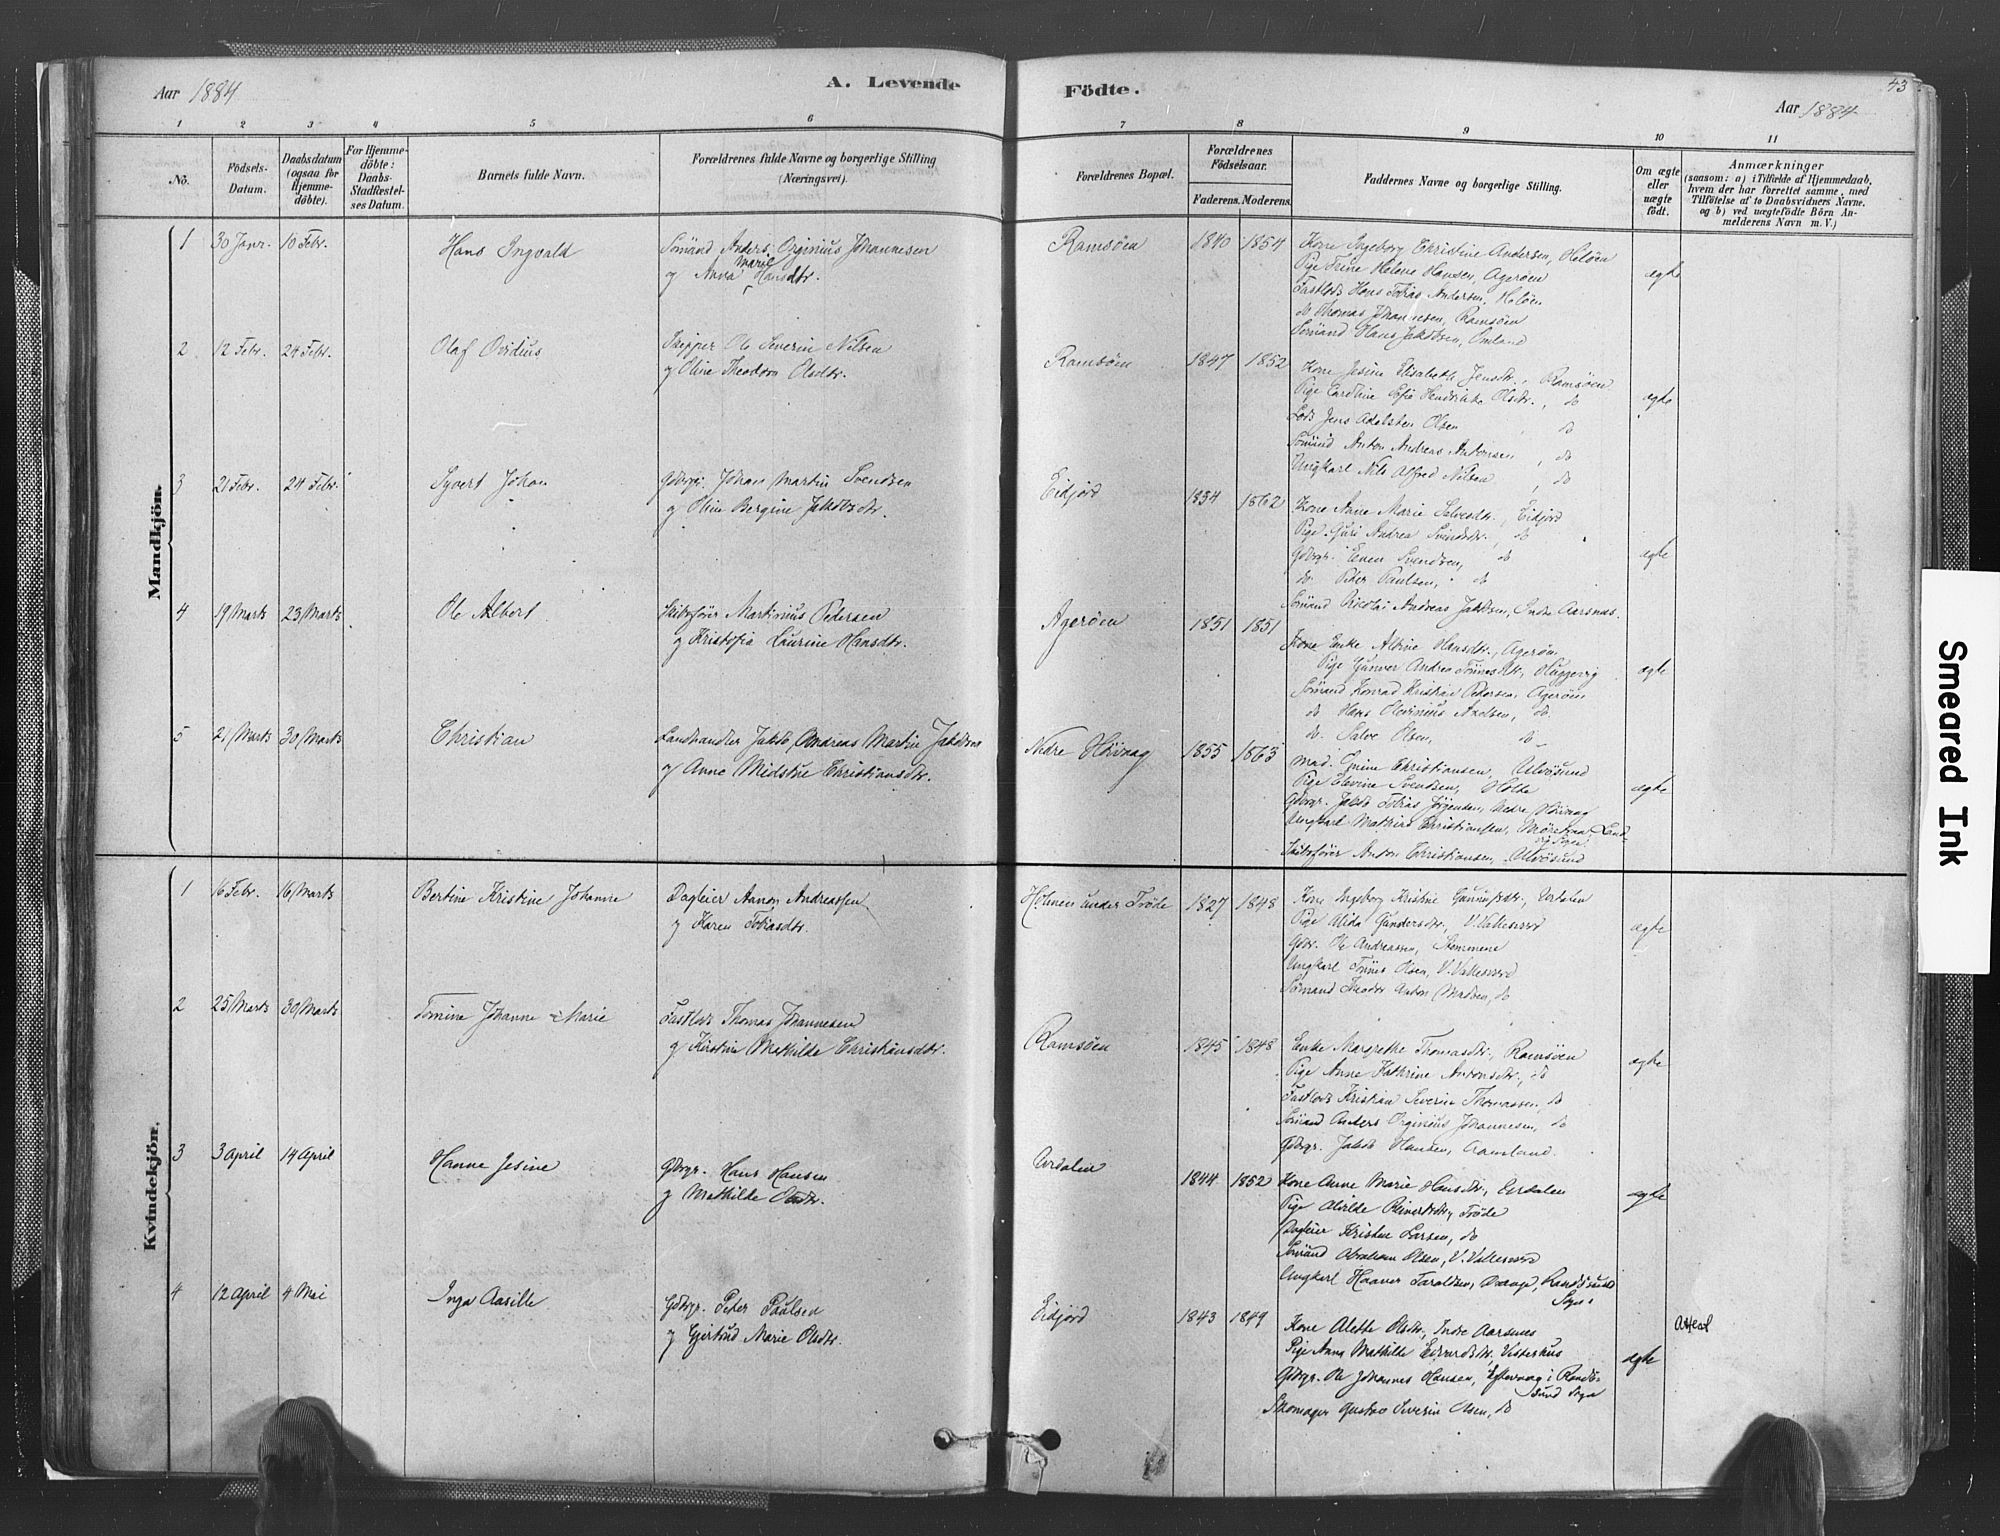 Aar 1884
A. Levende
Födte.
43
Aar 1884
1 2 3 4 5 6 7 8 9 10 11
No.
Födsels-
Datum.
Daabsdatum
(ogsaa for
Hjemme-
döbte).
For Hjemme-
döbte:
Daabs-
Stadfæstel-
ses Datum.
Barnets fulde Navn.
Forældrenes fulde Navne og borgerlige Stilling
(Næringsvei).
Forældrenes Bopæl.
Forældrenes
Födselsaar.
Faderens. Moderens.
Faddernes Navne og borgerlige Stilling.
Om ægte
eller
uægte
födt.
Anmærkninger
(saasom: a) i Tilfælde af Hjemmedaab,
hvem der har forrettet samme, med
Tilföielse af to Daabsvidners Navne,
og b) ved uægtefödte Börn An-
melderens Navn m. V.)
Mandkjön.
1 30 Janr. 10 Febr. Hans Ingvald
Sömand Anders Orginius Johannesen
og Anna Marie Hansdtr.
Ramsöen 1840 1854
Kone Ingeborg Christine Andersen, Helöen
Pige Trine Helene Hansen, Ageröen
Fastlods Hans Tobias Andersen, Helöen
do Thomas Johannesen, Ramsöen
Sömand Hans Jakobsen, Omland
ægte
2 12 Febr. 24 Febr. Olaf Ovidius
Skipper Ole Severin Nilsen
og Oline Theodora Olsdtr.
Ramsöen 1847 1852
Kone Jesine Elisabeth Jensdtr., Ramsöen
Pige Caroline Sofie Hendrikke Olsdtr., do
Lods Jens Adolsten Olsen do
Sömand Anton Andreas Antonsen, do
Ungkarl Nils Alfred Nilsen, do
ægte
3 21 Febr. 24 Febr. Syvert Johan
Gdbrgr. Johan Martin Svendsen
og Oline Bergine Jakobsdtr.
Eidjord 1834 1862
Kone Anne Marie Salvesdtr., Eidjord
Pige Guri Andrea Svendsdtr., do
Gdbrgr. Even Svendsen, do
do. Peder Paulsen, do
Sömand Nicolai Andreas Jakobsen, Indre Aarsnæs.
ægte
4 19 Marts 23 Marts Ole Albert
Skibsförer Martinius Pedersen
og Kristofia Laurine Hansdtr.
Ageröen 1851 1851
Kone Enke Albine Hansdtr., Ageröen
Pige Gunver Andrea Tönnesdtr.,
Sömand Konrad Kristian Pedersen, Ageröen
do Hans Olevinius Axelsen, do.
do. Salve Olsen, do
ægte
5 21 Marts 30 Marts Christian
Landhandler Jakob Andreas Martin Jakobsen
og Anne Midstue Christiansdtr.
Nedre Hövaag 1855 1863
Mad. Christiansen, Ulvösund
Pige Elevine Svendsen, Holte
Gdbrgr. Jakob Tobias Jörgensen, Nedre Hövaag
Ungkarl Mathias Christiansen,
Skibsförer Anton Christiansen, Ulvösund
ægte
Kvindekjön.
1 16 Febr. 16 Marts Bertine Kristine Johanne
Dagleier Aanon Andreassen
og Karen Tobiasdtr.
Holmen under Tröde 1827 1848
Kone Ingeborg Kristine
Pige Alida Gundersdtr., V. Vallesverd
Gdbr. Ole Andreassen, Stemmene
Ungkarl Tönnes Olsen, V. Vallesverd
Sömand Theodor Anton Madsen, do
ægte
2 25 Marts 30 Marts Tomine Johanne Marie
Fastlods Thomas Johannesen
og Kirstine Mathilde Christiansdtr.
Ramsöen 1845 1848
Enke Margrethe Thomasdtr., Ramsöen
Pige Anne Kathrine Antonsdtr., do
Fastlods Kristian Severin Thomassen, do
Sömand Anders Orginius Johannesen, do
Gdbrgr. Jakob Hansen, Aamland.
ægte
3 3 April 14 April Hanne Jesine
Gdbrgr. Hans Hansen
og Mathilde Olsdtr.
1844 1852
Kone Anne Marie Hansdtr.,
Pige Alvilde Reiersdtr., Tröde
Dagleier Kristen Larsen, do
Sömand Abraham Olsen, V. Vallesverd
Ungkarl Haaver Taraldsen, Randösund
Sogn
ægte
4 12 April 4 Mai Inga Aasille
Gdbrgr. Peter Paulsen
og Gjertrud Marie Olsdtr.
Eidjord 1843 1849
Kone Alette Olsdtr., Indre Aarsnes
Pige Anna Mathilde Edvardsdtr. Vesterhus
Gdbrgr. Ole Johannes Hansen, i Randö-
sund Sogn
Skomager Gustav Severin Olsen, do
ægte
Attest
Smeared Ink